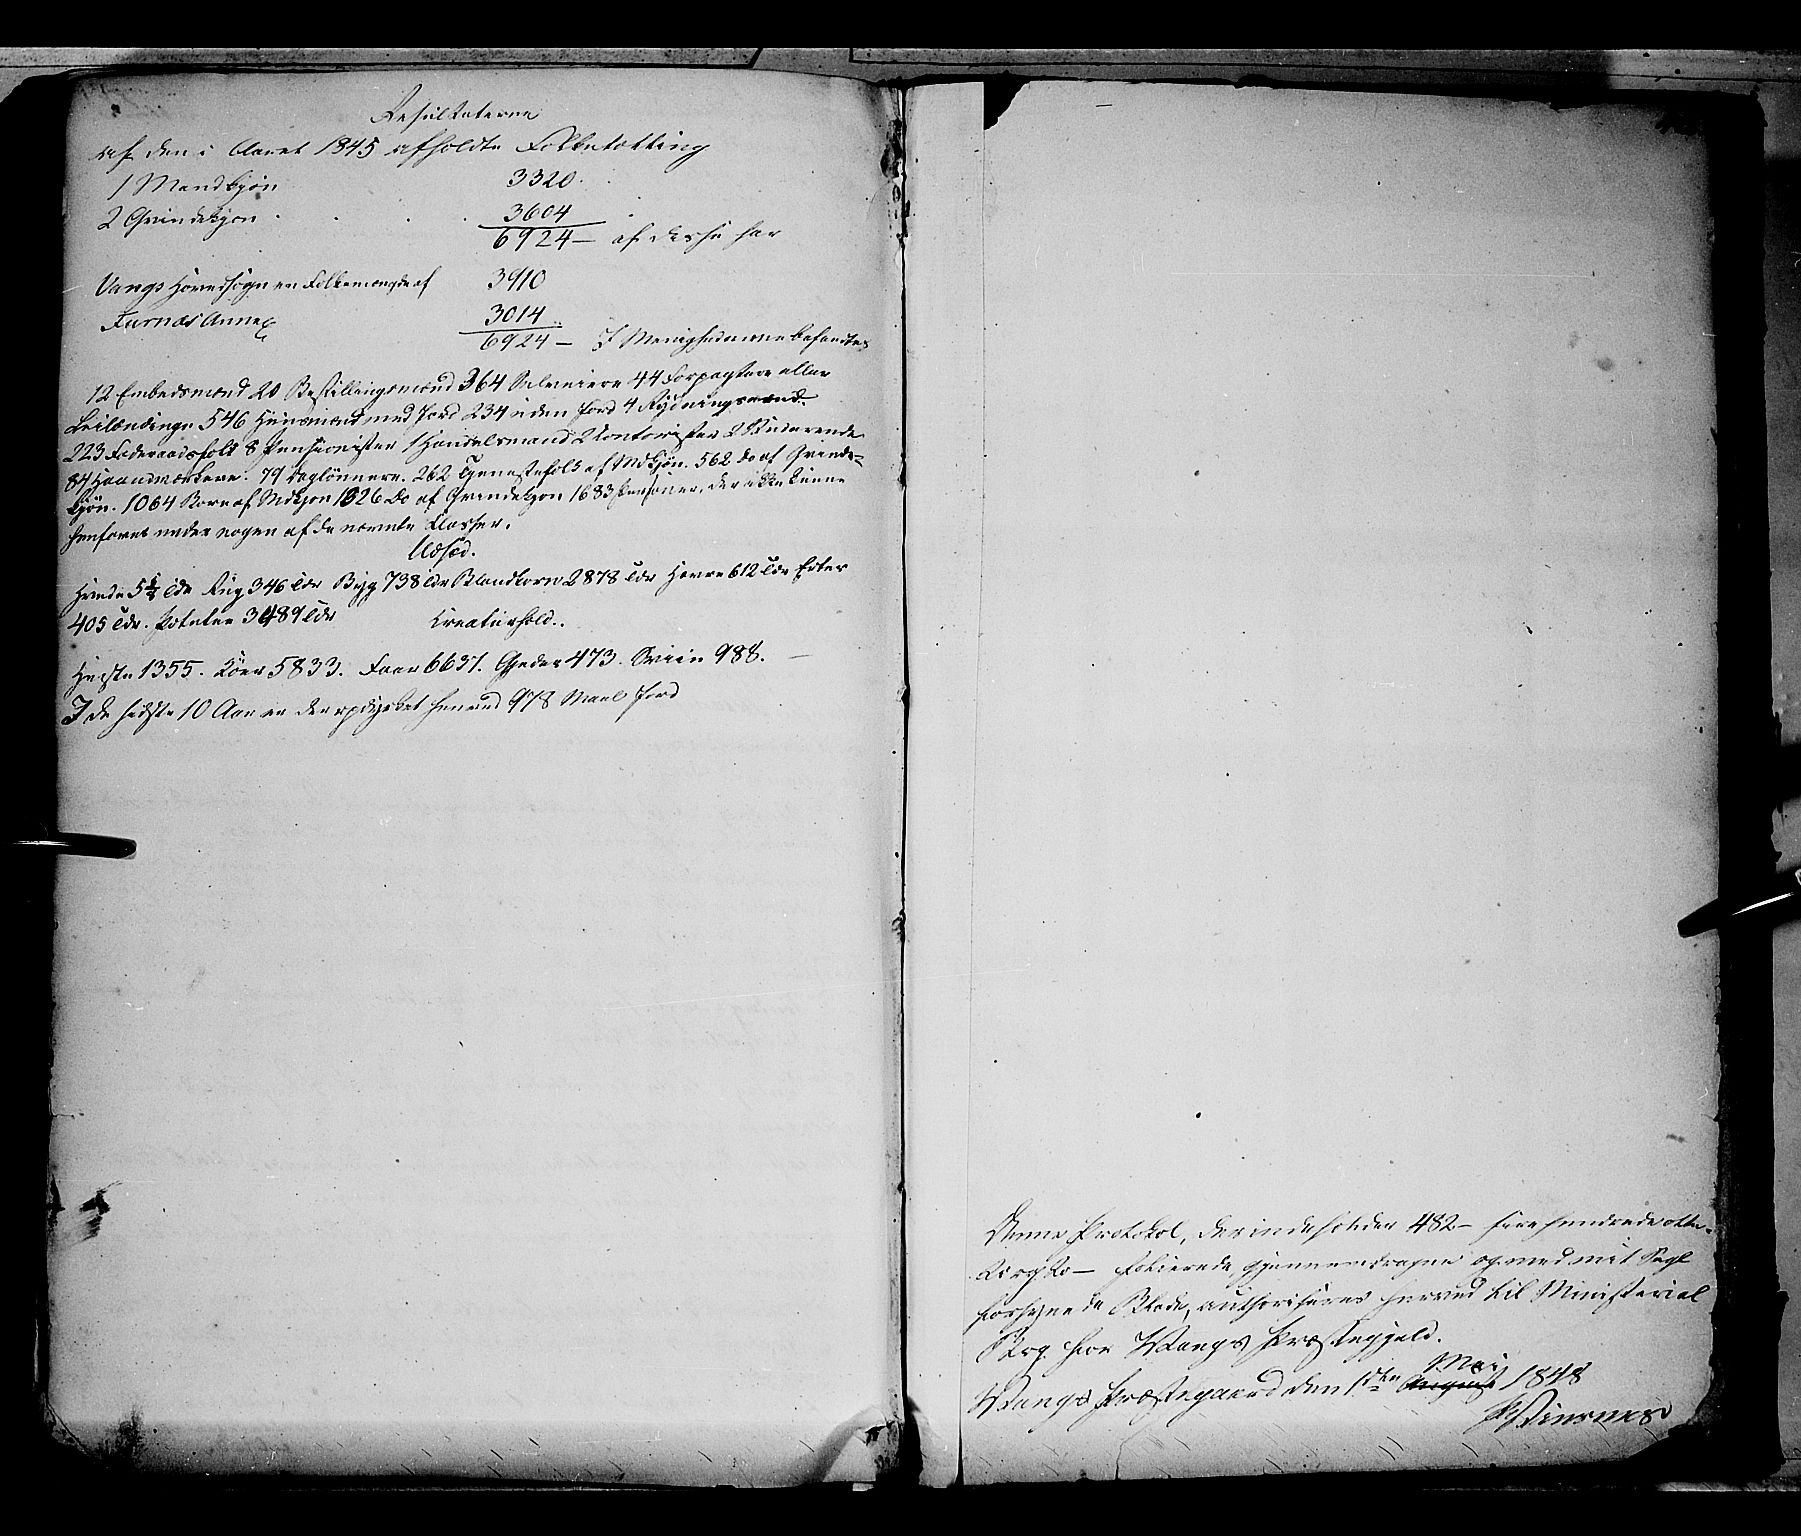 Resultaterne
af den i Aaret 1845 afholdte Folketælling
1 Mandkjøn 3320
2 Qvindekjøn 3604
6924 – af disse har
Vangs Hovedsogn en Folkemængde af 3910
Furnæs Annex 3014
6924 – I Menighederne befandtes
12 Embedsmænd 20 Bestillingsmænd 364 Selveiere 44 Forpagtere eller
Leilændinge 546 Huusmænd med Jord 234 uden Jord 4 Rydningsmænd.
223 Føderaadsfolk 8 Pensionister 1 Handelsmand 2 Contorister 2 Studerende
84 Haandværkere. 79 Daglønnere. 262 Tjenestefolk af Mdkjøn. 562 do af Qvinde-
kjøn. 1064 Børn af Mdkjøn 1026 do af Qvindekjøn 1683 Personer, der ikke kunne
henføres under nogen af de nævnte Classer.
Udsæd.
Hvede 5½ Tdr Rug 346 Tdr Byg 738 Tdr Blandkorn 2878 Tdr Havre 612 Tdr Erter
405 Tdr. Poteter 3489 Tdr Kreaturhold.
Heste 1355. Køer 5833. Faar 6637. Gjeder 473. Sviin 988. –
I de sidste 10 Aar er der opdyrket henved 978 Maal Jord
Denne Protokol, der indeholder 482 – fire hundrede otte-
tiogto – folierede, gjennemdragne og med mit Segl
forsynede Blade, authoriseres herved til Ministerial
Bog for Wangs Præstegjeld.
Mai
Wangs Præstegaard den 1ste August 1848